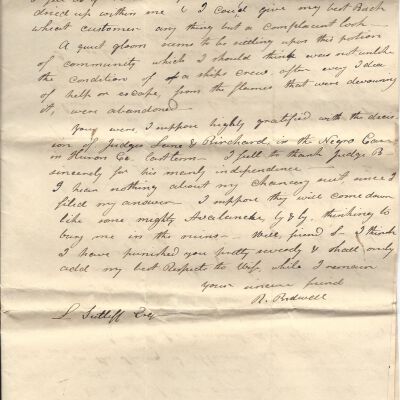 dried up within me & I could give my best Buck
wheat customer any thing but a complaisant look
A quiet gloom seems to be settling upon this portion
of community which I should think was not unlike
the condition of a ships crew, after every idea
of help or escape, from the flames that were devouring
it, were abandoned
You were, I suppose highly gratified with the decis-
ion of Judges Lane & Birchard, in the Negro Case
in Huron Co. last term — I felt to thank Judge B—
sincerely for his manly independence
I hear nothing about my Chancery suit since I
filed my answer I suppose they will come down
like some mighty Avalanche, by & by, thinking to
bury me in the ruins — Well, friend S— I think
I have punished you pretty severely & shall only
add my best Respects to Wife, while I remain
your sincere friend
R. Bidwell
L. Sutliff Esq